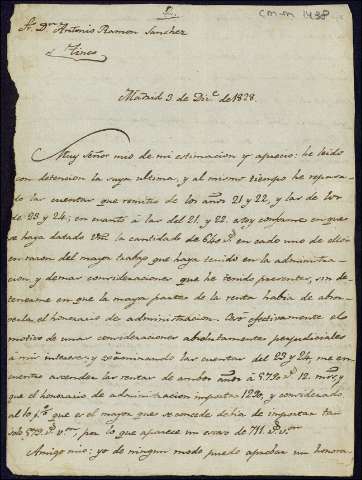 1.
cm-m 1438
Sr. Dn. Antonio Ramon Sanchez
Tineo
Madrid 3 de Dice. de 1828.
Muy Señor mio de mi estimacion y aprecio: he leido
con detencion la suya ultima, y al mismo tiempo he repasa-
do las cuentas que remite de los años 21 y 22, y las de los
de 23 y 24; en cuanto á las del 21, y 22. estoy conforme en que
se haya datado Vm la cantidad de 640 rs. en cada uno de ellos
en razon del mayor trabajo que haya tenido en la administra-
cion, y demas consideraciones que he tenido presentes, sin de-
tenerme en que la mayor parte de la renta habia de absor-
verla el honorario de administracion. Pero efectivamente
motivo de unas consideraciones absolutamente perjudiciales
á mis intereses y examinando las cuentas del 23 y 24, me en-
cuentro ascender las rentas de ambos años á 5730 rs. 12. mrs. y
que el honorario de administracion importa 1290, y considerado
al 10 p% que es el mayor que se concede debia de importar tan
solo 573 rs. von, por lo que aparece un exceso de 711 rs. von
Amigo mio: yo de ningun modo puedo aprobar un honora-